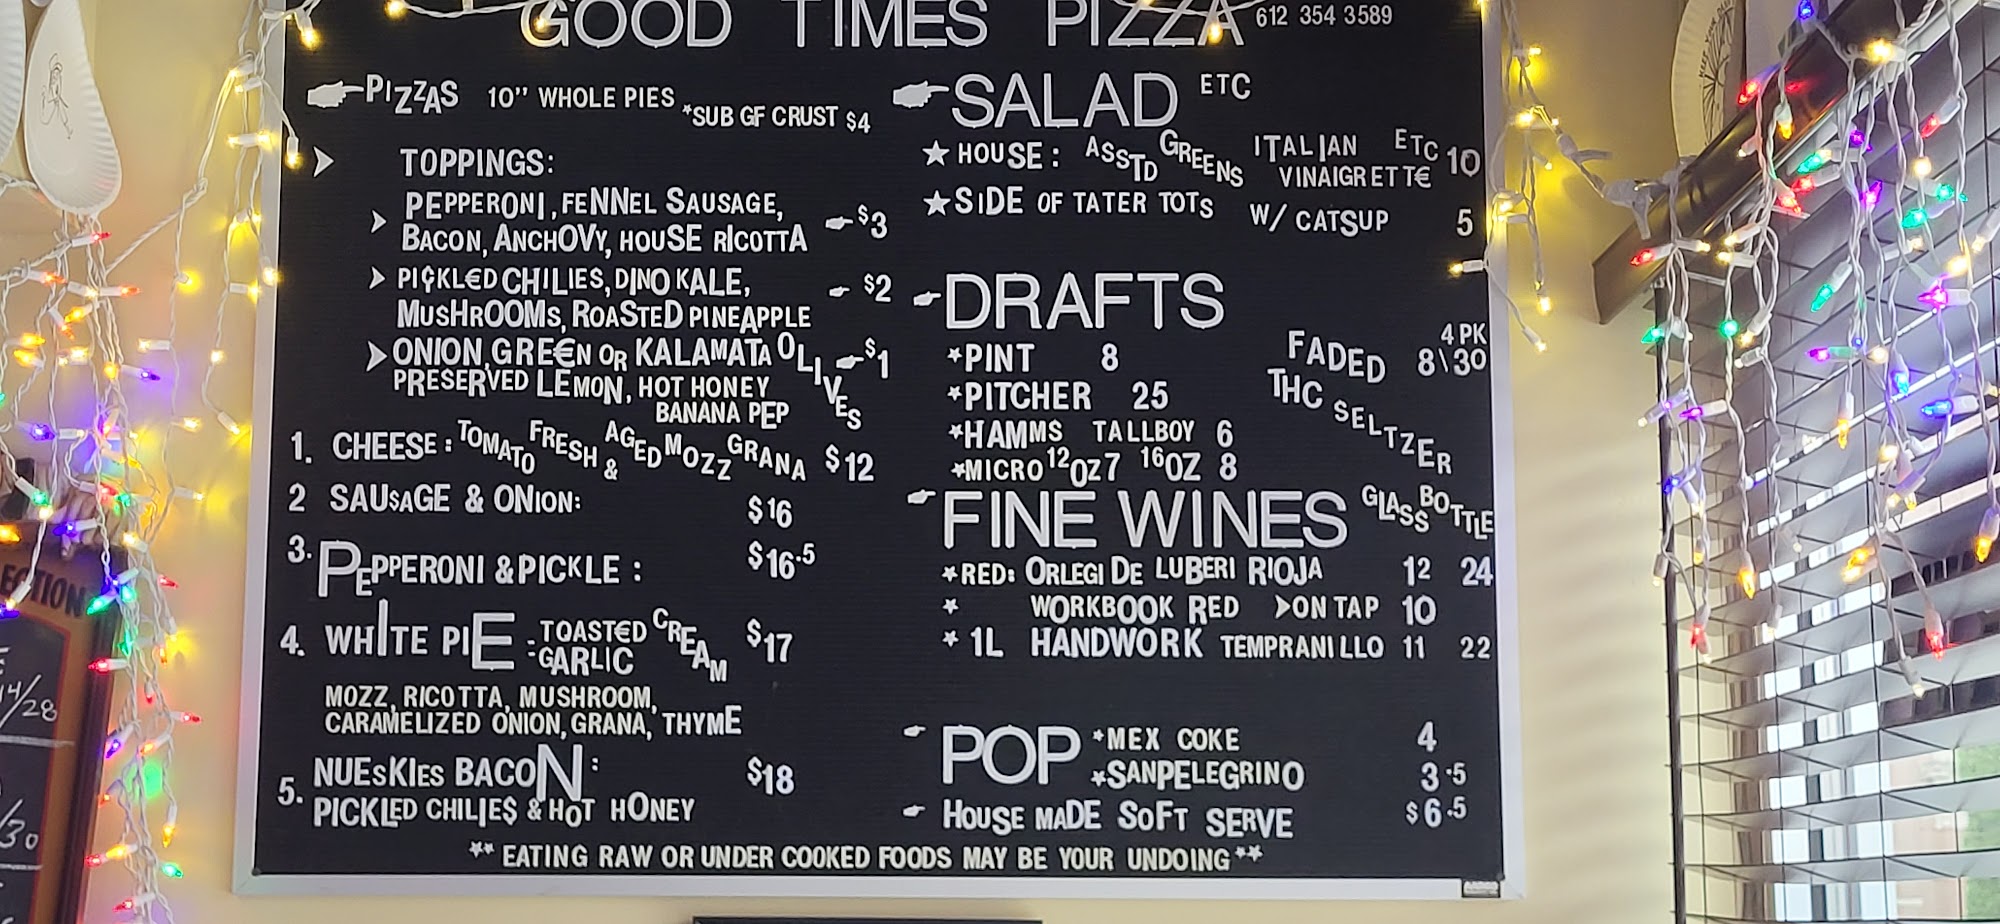 GOOD TIMES PIZZA 612 354 3589
PIZZAS 10" WHOLE PIES *SUB GF CRUST $4
TOPPINGS:
PEPPERONI, FENNEL SAUSAGE,
BACON, ANCHOVY, HOUSE RICOTTA $3
PI¢KL€D CHILIES, DINO KALE,
MUSHROOMS, ROASTED PINEAPPLE $2
ONION, GRE€N OR KALAMATA OLIVES $1
PRESERVED LEMON, HOT HONEY
BANANA PEP
1. CHEESE: TOMATO FRESH & AGED MOZZ GRANA $12
2 SAU$AGE & ONION: $16
3. PEPPERONI & PICKLE: $16.5
4. WHITE PIE - TOAST€D CREAM $17
- GARLIC
MOZZ, RICOTTA, MUSHROOM,
CARAMELIZED ONION, GRANA, THYME
5. NUESKIES BACON: $18
PICKLED CHILIE$ & HOT HONEY
SALAD ETC
★ HOUSE: ASSTD GREENS ITALIAN ETC 10
VINAIGRETT€
★ SIDE OF TATER TOTS W/ CATSUP 5
DRAFTS
*PINT 8
*PITCHER 25
*HAMMS TALLBOY 6
*MICRO 12OZ 7 16OZ 8
4 PK
FADED 8\30
THC SELTZER
FINE WINES GLASS BOTTLE
*RED: ORLEGI DE LUBERI RIOJA 12 24
* WORKBOOK RED >ON TAP 10
* 1L HANDWORK TEMPRANILLO 11 22
POP *MEX COKE 4
*SANPELEGRINO 3.5
HOUSE MADE SOFT SERVE $6.5
** EATING RAW OR UNDER COOKED FOODS MAY BE YOUR UNDOING **
ECTION
14/28
/30